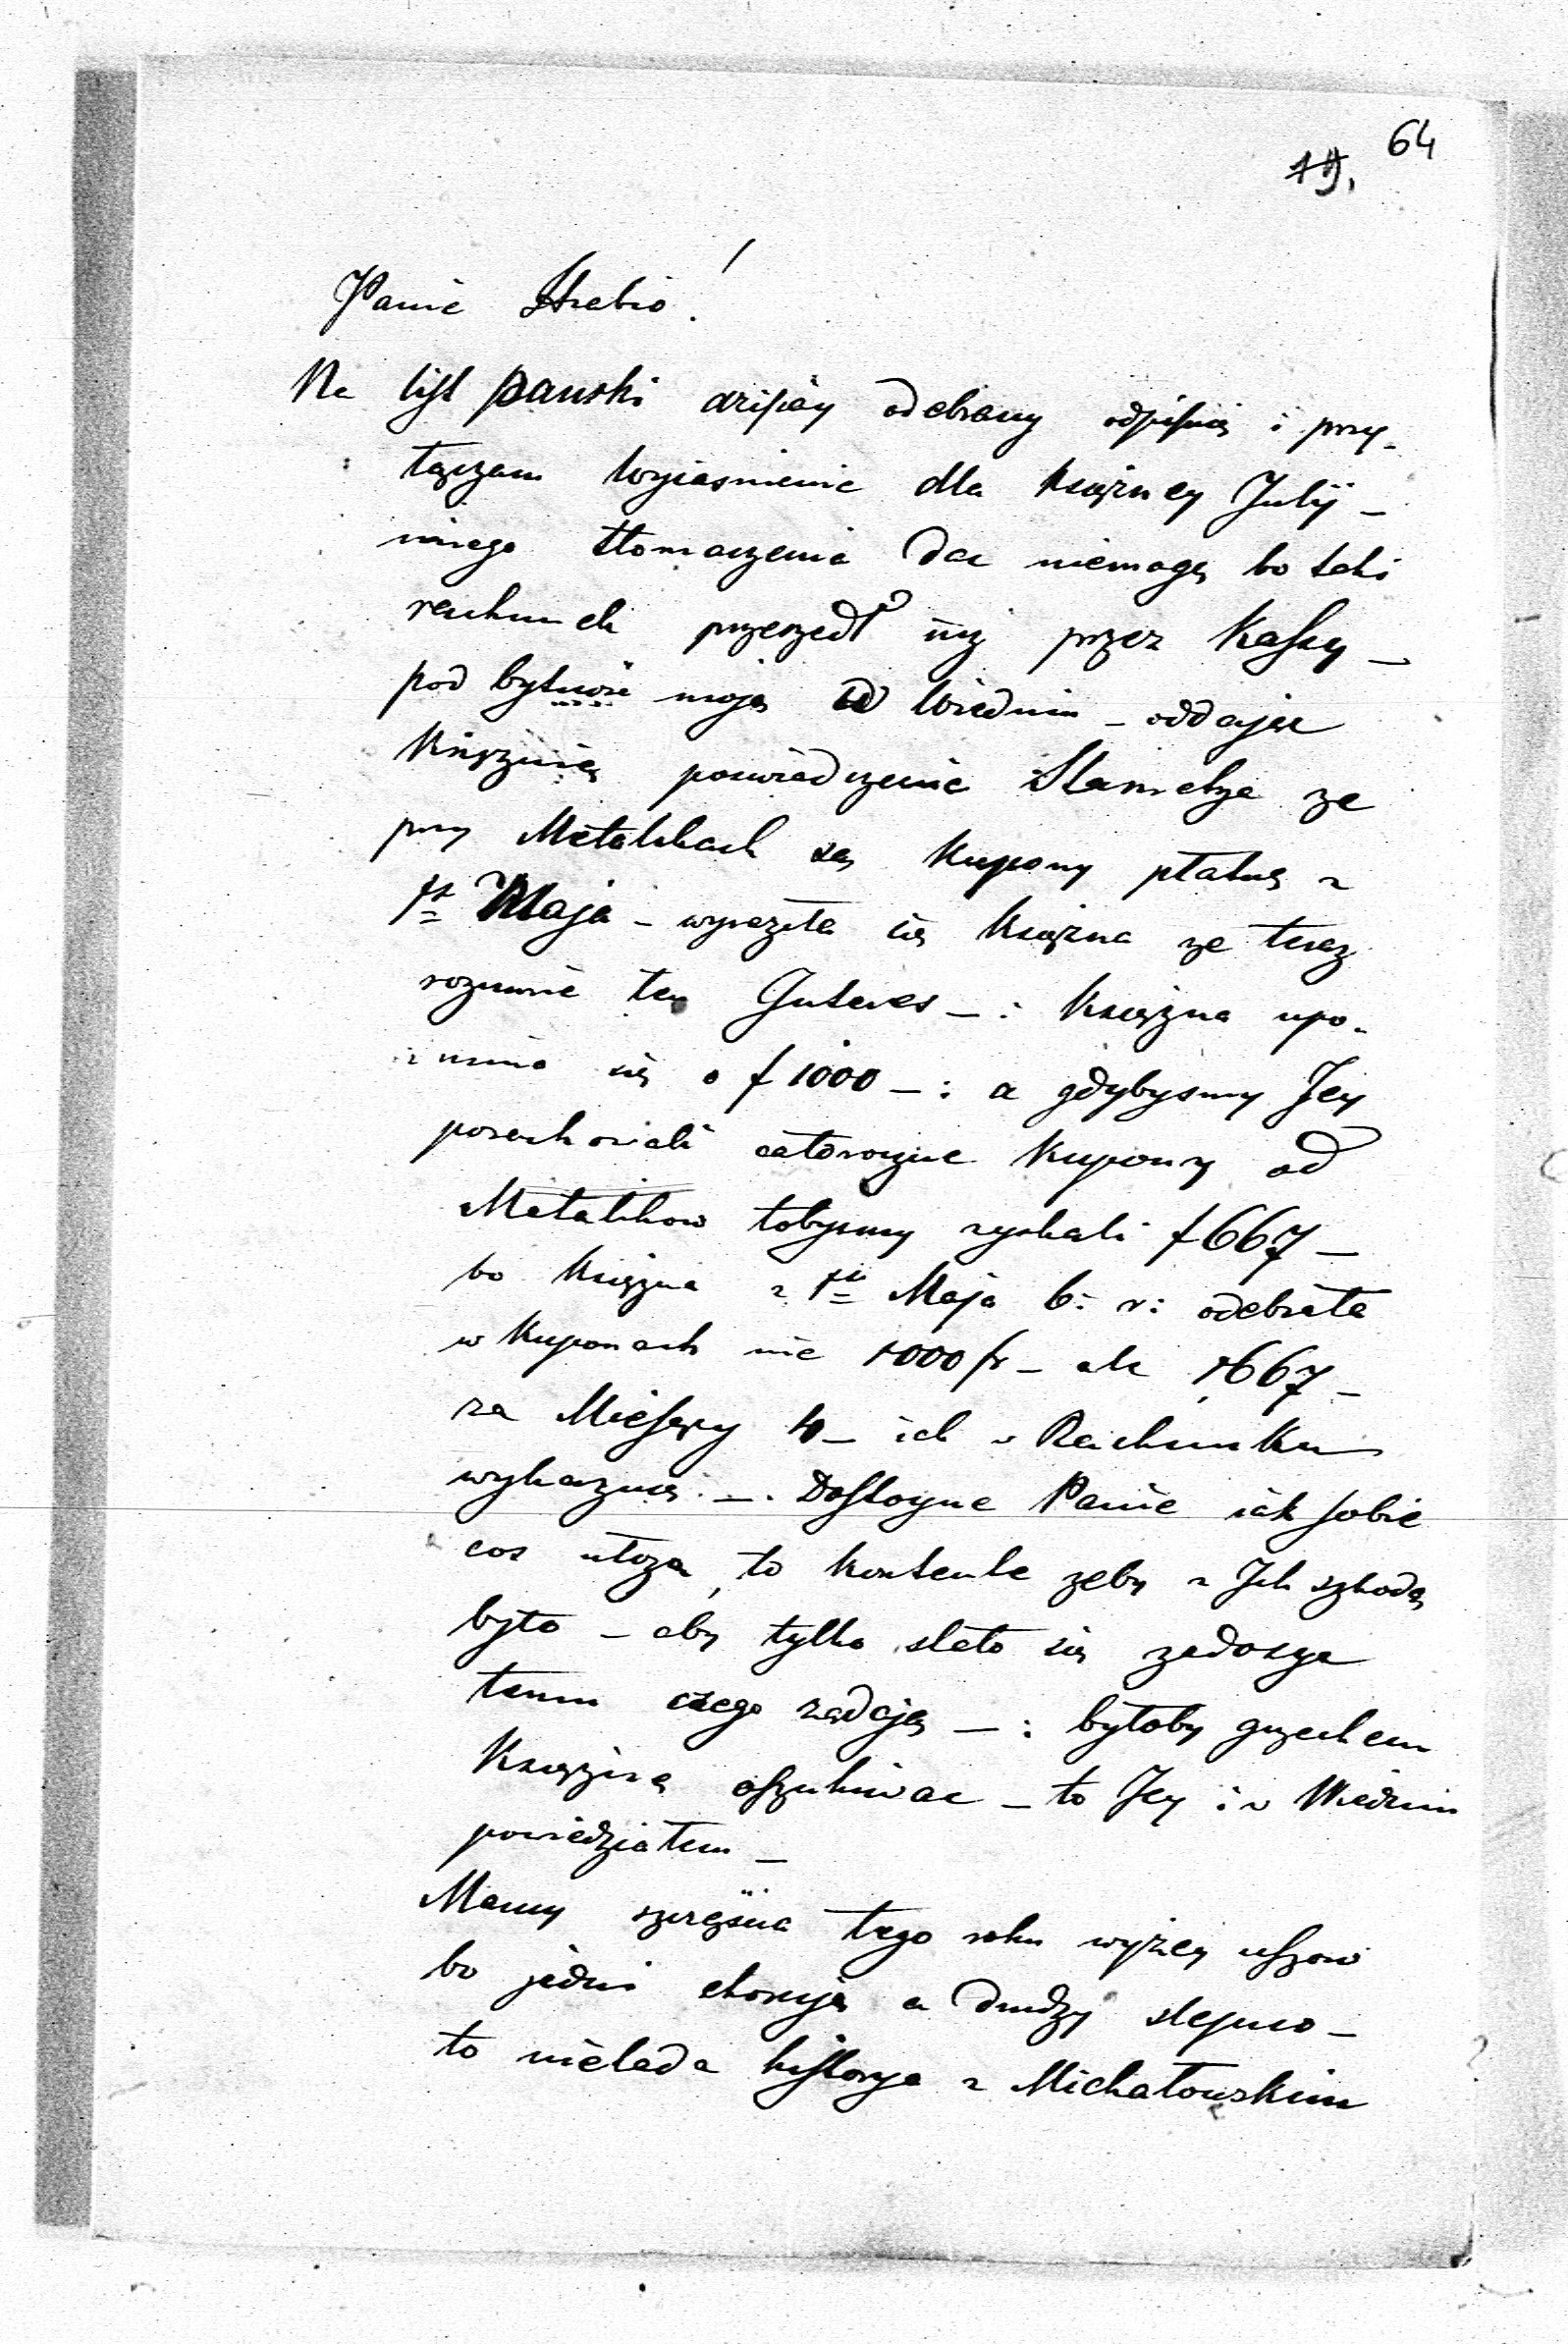 64
19.
Panie Hrabio!
Na list pański dzisiay odebrany odpisuię i przy-
łączam wyiasnienie dla Xiężney Julij –
innego tłomaczenia dac niemogę bo taki
rachunek przeszedł iuz przez Kassę –
pod bytność moją w Wiedniu – oddając
Xiężnie poswiadczenie Stametza ze
przy Metalikach są Kupony płatne z
1º Maja – wyraziła się Xiężna ze teraz
rozumie ten Interes –: Xiężna upo-
mina się o f 1000 –: a gdybysmy Jey
porachowali całoroczne Kupony od
Metalikow tobysmy zyskali f 667 –
bo Xiężna z 1º Maja b: r: odebrała
w Kuponach nie 1000 fr – ale 1667 –
za Miesięcy 4 – ich w Rachunku
wykazuią. –. Dostoyne Panie iak sobie
cos ułożą, to kontente zeby z Ich szkodą
było – aby tylko stało się zadosyc
temu czego ządają –: byłoby grzechem
Xiężnę oszukiwac – to Jey i w Wiedniu
powiedziałem –
Mamy szczęscia tego roku wyżey uszow
bo jedni chorują a drudzy slepno –
to nielada historya z Michałowskim